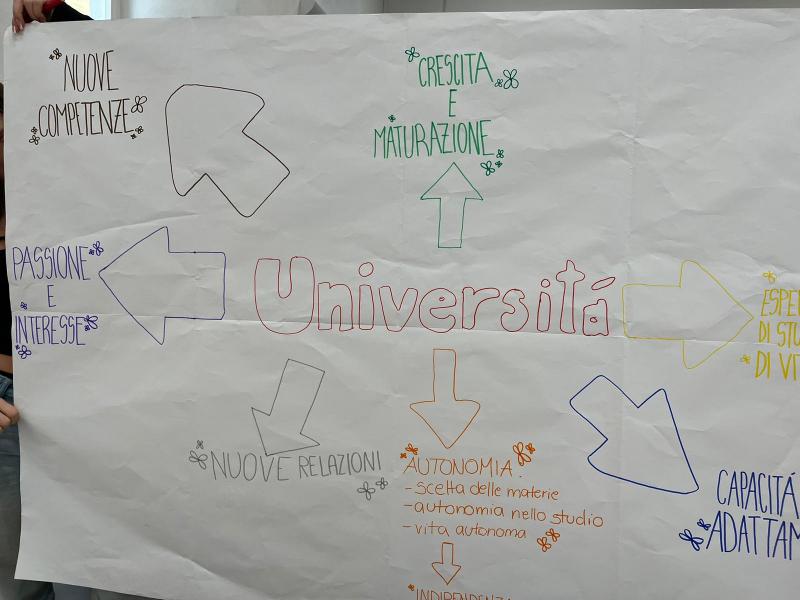 NUOVE
COMPETENZE
CRESCITA
E
MATURAZIONE
PASSIONE
E
INTERESSE
Universitá
DI
DI
NUOVE RELAZIONI
AUTONOMIA.
- scelta delle materie
- autonomia nello studio
- vita autonoma
CAPACITÁ